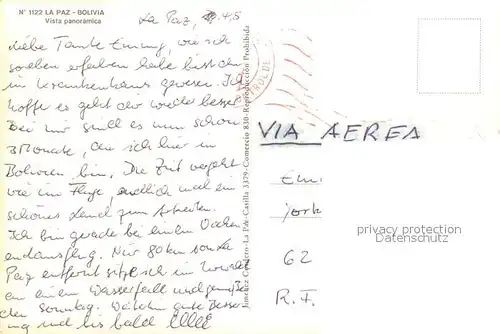 N° 1122 LA PAZ - BOLIVIA
Vista panorámica
La Paz, 4.5
Liebe Tante Emmy, wie ich
soeben erfahren habe bist du
im Krankenhaus gewesen. Ich
hoffe es geht dir wieder besser
Bei mir sind es nun schon
Monate, die ich hier in
Bolivien bin. Die Zeit vergeht
wie im Fluge, endlich mal ein
schönes Land zum Arbeiten.
Ich bin gerade bei einem Wochen
endausflug. Nur 80km von La
Paz entfernt sitze ich im Urwald
an einem Wasserfall und
den Sonntag. gute Besser
ung und bis bald
Jimenez La Paz-Casilla 3379-Comercio 830-Reproducción Prohibida
VIA AEREA
Em
York
62
R.F.
akpool GmbH
Datenschutz